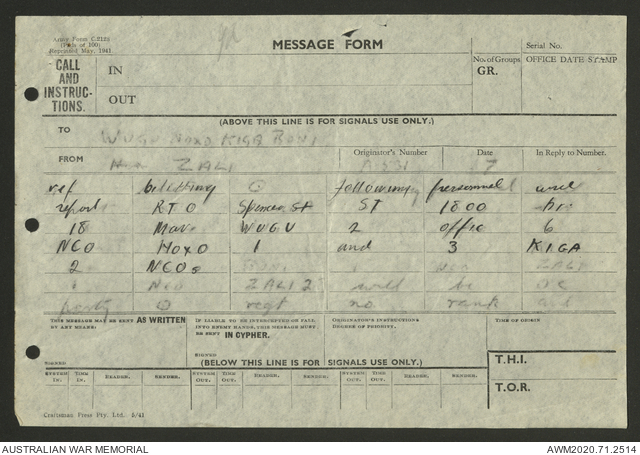 Army Form C.2128
(Pads of 100)
Reprinted May, 1941
MESSAGE FORM
Serial No.
CALL
AND
INSTRUC-
TIONS.
IN
OUT
No. of Groups
GR.
OFFICE DATE STAMP
(ABOVE THIS LINE IS FOR SIGNALS USE ONLY.)
TO WUGU HOXO KIGA
FROM ZALI
Originator's Number
Date
17
In Reply to Number.
ref billetting O following personnel will
report RTO Spencer St ST 1800 hrs
18 Mar WUGU 2 6
NCO HOXO 1 and 3 KIGA
2 NCOs
1 NCO ZALI 2 will be OC
party O rept no. rank and
THIS MESSAGE MAY BE SENT AS WRITTEN
BY ANY MEANS:
SIGNED
IF LIABLE TO BE INTERCEPTED OR FALL
INTO ENEMY HANDS, THIS MESSAGE MUST
BE SENT IN CYPHER.
SIGNED
ORIGINATOR'S INSTRUCTIONS
DEGREE OF PRIORITY.
TIME OF ORIGIN
(BELOW THIS LINE IS FOR SIGNALS USE ONLY.)
T.H.I.
T.O.R.
SYSTEM IN: TIME IN: READER. SENDER. SYSTEM OUT. TIME OUT. READER. SENDER. SYSTEM OUT. TIME OUT. READER. SENDER.
Craftsman Press Pty. Ltd. 5/41
AUSTRALIAN WAR MEMORIAL
AWM2020.71.2514